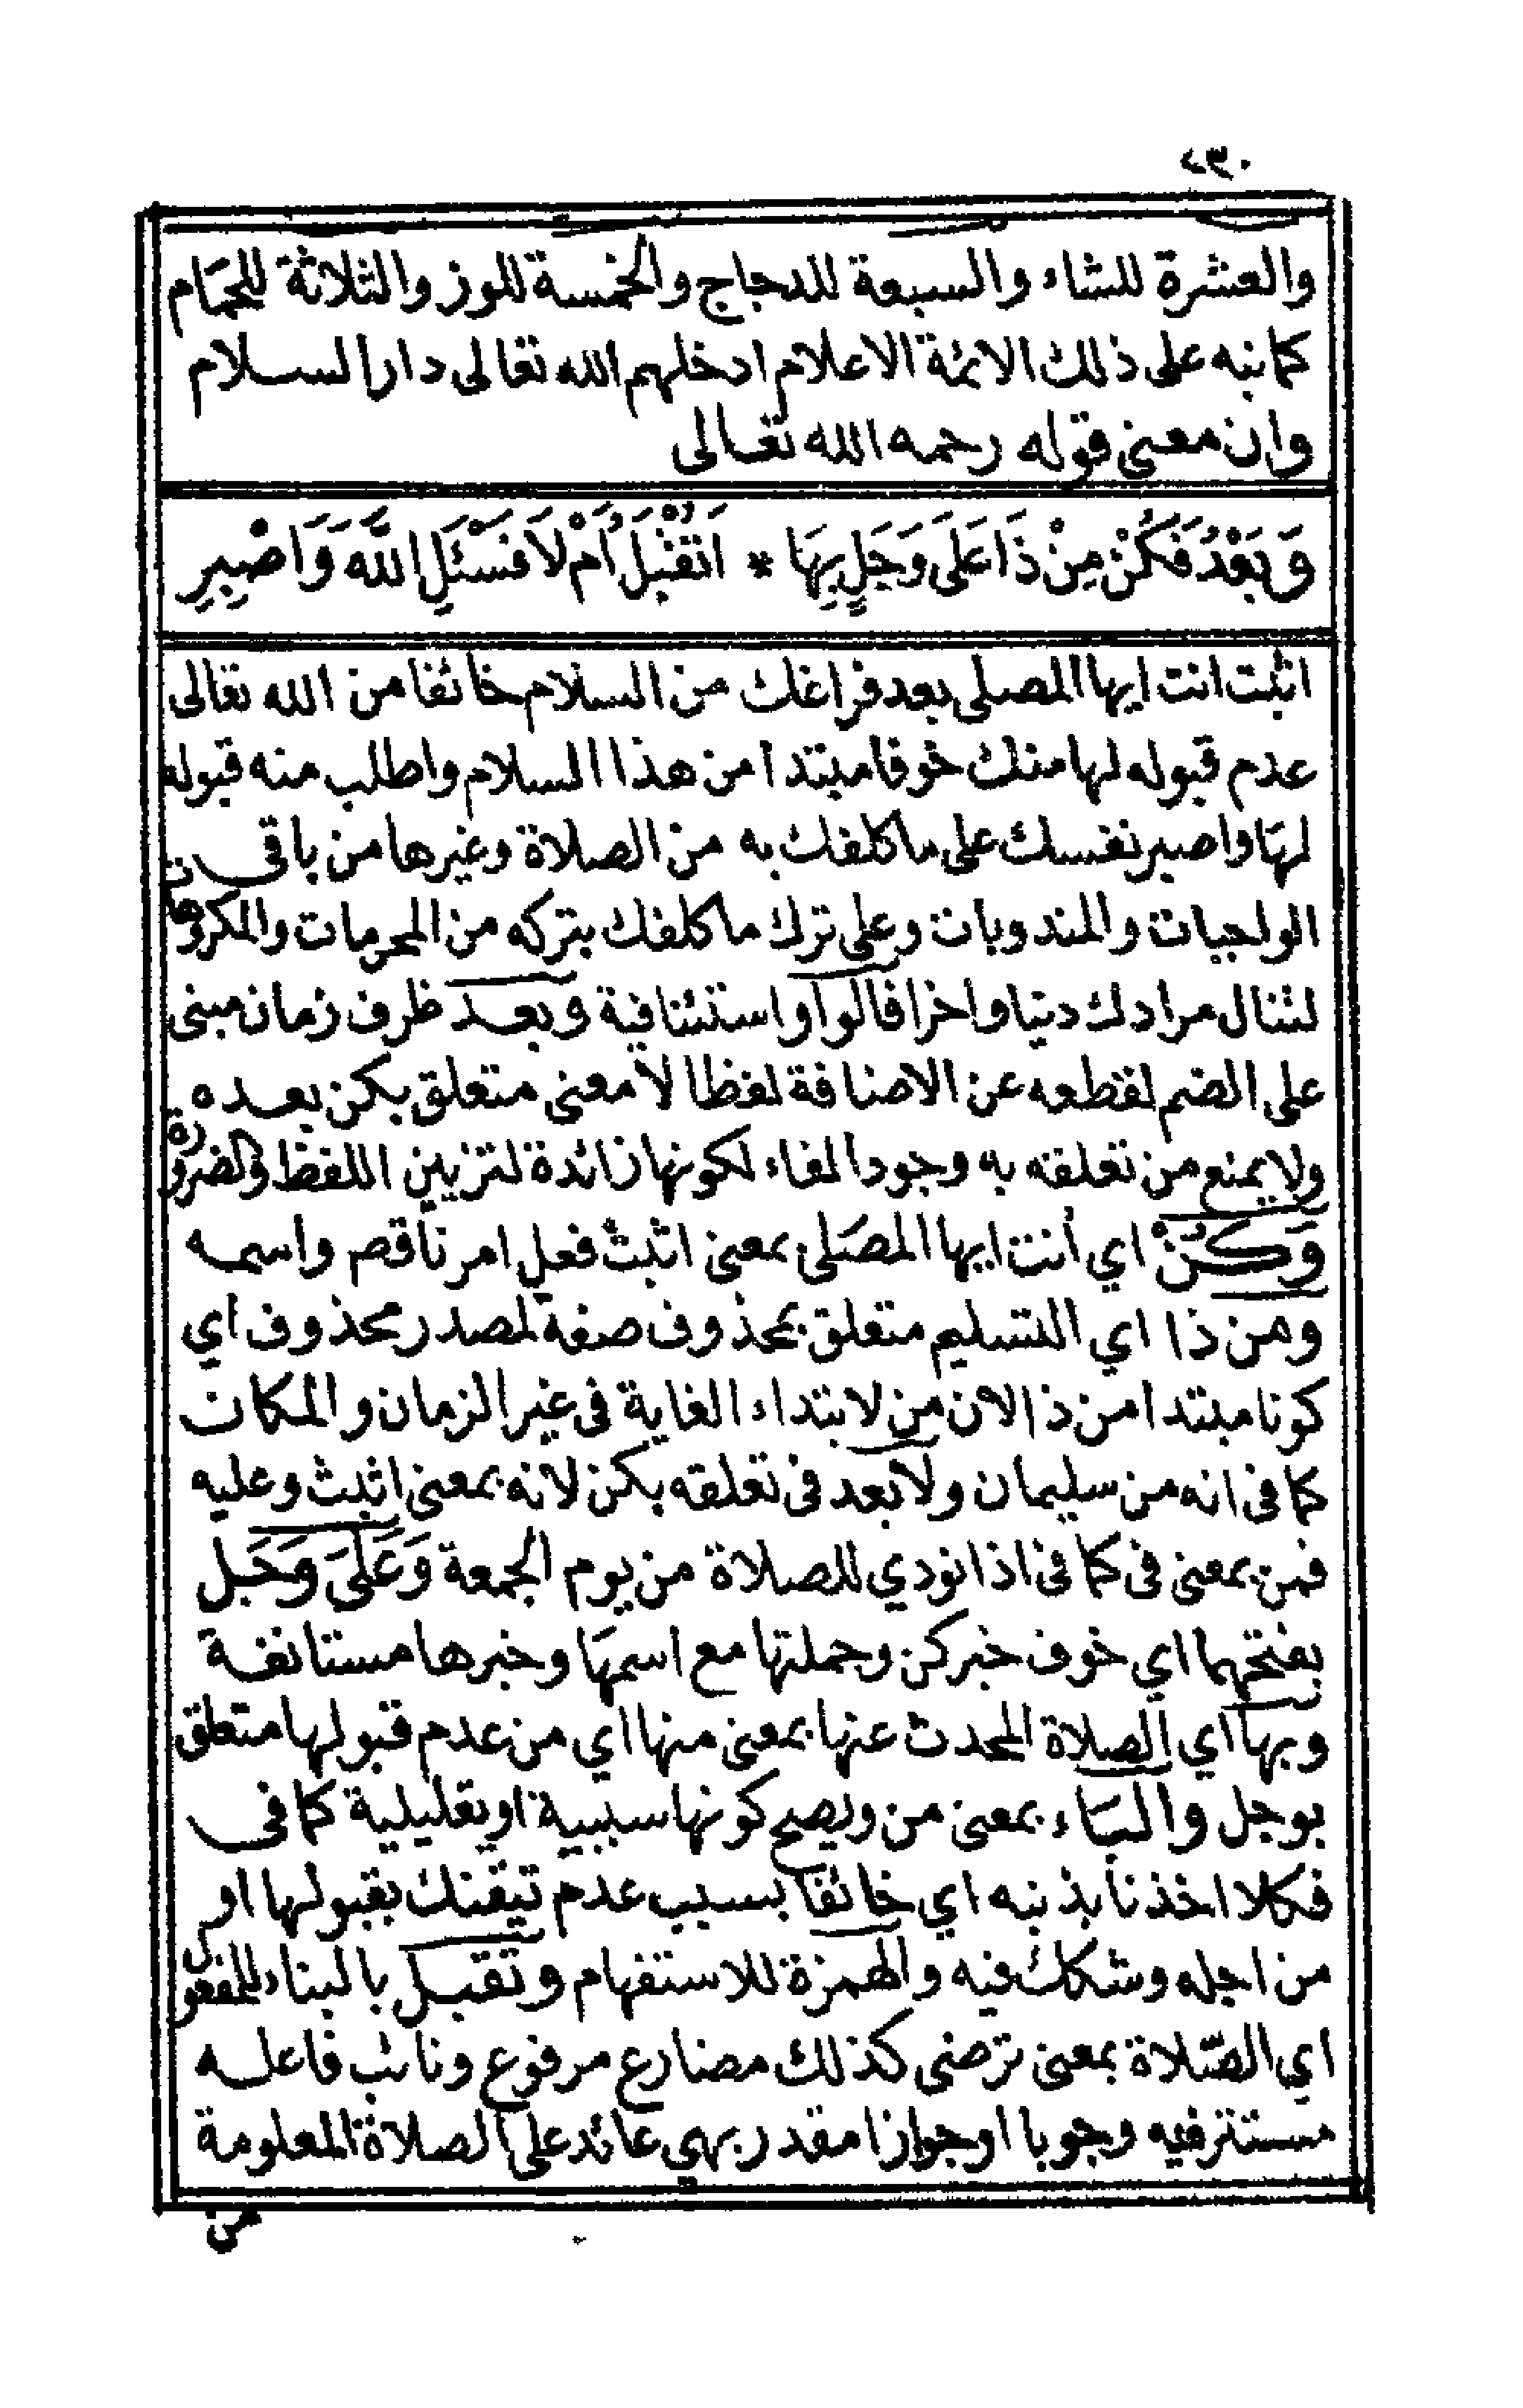 ٢٣٠
والعشرة للشاء والسبعة للدجاج والخمسة للوز والثلاثة للحمام
كما نبه على ذلك الائمة الاعلام ادخلهم الله تعالى دار السلام
وان معنى قوله رحمه الله تعالى
وَبَعْدُ فَكُنْ مِنْ ذَا عَلَى وَجَلٍ بِهَا * اَتُقْبَلُ اَمْ لَا فَسْئَلِ اللَّهَ وَاصْبِرِ
اثبت انت ايها المصلي بعد فراغك من السلام خائفا من الله تعالى
عدم قبوله لها منك خوفا مبتدا من هذا السلام واطلب منه قبوله
لها واصبر نفسك على ما كلفك به من الصلاة وغيرها من باقي
الواجبات والمندوبات وعلى ترك ما كلفك بتركه من المحرمات والمكروهات
لتنال مرادك دنيا واخرا فالواو استئنافية وبعد ظرف زمان مبنى
على الضم لقطعه عن الاضافة لفظا لا معنى متعلق بكن بعده
ولا يمنع من تعلقه به وجود الفاء لكونها زائدة لتزيين اللفظ والضرورة
وَكُنْ اي أنت ايها المصَلي بمعنى اثبت فعل امر ناقص واسمه
ومن ذا اي التسليم متعلق بمحذوف صفة لمصدر محذوف اي
كونا مبتدا من ذا لان من لابتداء الغاية فى غير الزمان والمكان
كما فى انه من سليمان ولا بعد فى تعلقه بكن لانه بمعنى اثبت وعليه
فمن بمعنى فى كما فى اذا نودي للصلاة من يوم الجمعة وَعَلَىَ وَجَل
بفتحهما اي خوف خبر كن وجملتها مع اسمهَا وخبرها مستانفة
وبها اي الصلاة المحدث عنها بمعنى منها اي من عدم قبولها متعلق
بوجل والبَاء بمعنى من ويصح كونها سببية او تعليلية كما فى
فكلا اخذنا بذنبه اي خائفا بسبب عدم تيقنك بقبولها او
من اجله وشكك فيه والهمزة للاستفهام وتقبل بالبناء للمفعول
اي الصّلاة بمعنى ترضى كذلك مضارع مرفوع ونائب فاعله
مستتر فيه وجوبا او جوازا مقدر بهي عائد على الصلاة المعلومة
من